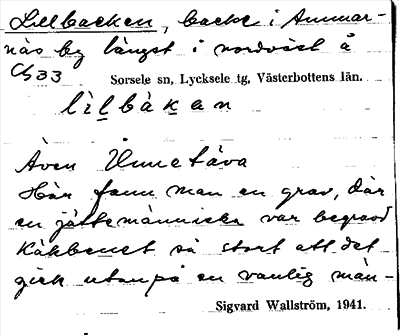 Lillbacken, backe i Ammar-
näs by längst i nordväst å
Ch 33 Sorsele sn, Lycksele tg, Västerbottens län.
lìlbàkan
Även
Här fann man en grav, där
en jättemänniska var begravd
Käkbenet så stort att det
gick utanpå en vanlig män-
Sigvard Wallström, 1941.